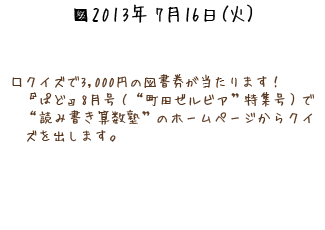 図2013年7月16日(火)
□クイズで3,000円の図書券が当たります！
『ぱど』8月号(“町田ゼルビア”特集号)で
“読み書き算数塾”のホームページからクイ
ズを出します。